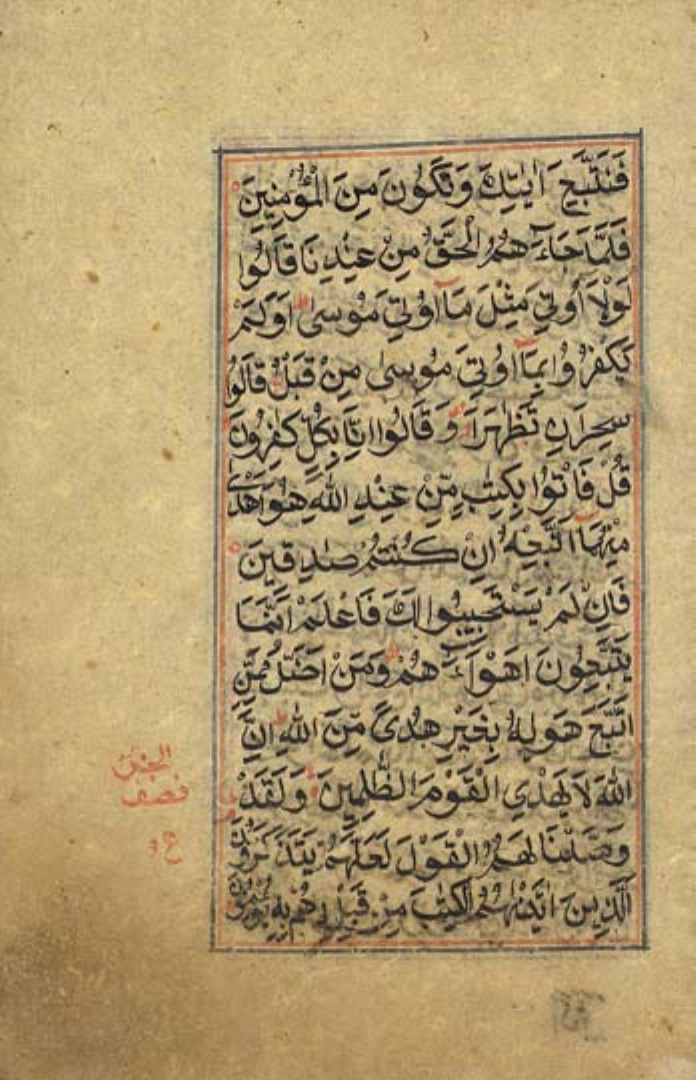 فَنَتَّبِعَ اٰيٰتِكَ وَنَكُوْنَ مِنَ الْمُؤْمِنِيْنَ
فَلَمَّا جَآءَ هُمُ الْحَقُّ مِنْ عِنْدِنَا قَالُوْا
لَوْلَا اُوْتِيَ مِثْلَ مَآ اُوْتِيَ مُوْسٰى اَوَلَمْ
يَكْفُرُوْا بِمَآ اُوْتِيَ مُوْسٰى مِنْ قَبْلُ قَالُوْا
سِحْرَانِ تَظٰهَرَا وَ قَالُوْا اِنَّا بِكُلٍّ كٰفِرُوْنَ
قُلْ فَاْتُوْا بِكِتٰبٍ مِّنْ عِنْدِ اللّٰهِ هُوَ اَهْدٰى
مِنْهُمَآ اَتَّبِعْهُ اِنْ كُنْتُمْ صٰدِقِيْنَ
فَاِنْ لَّمْ يَسْتَجِيْبُوْا لَكَ فَاعْلَمْ اَنَّمَا
يَتَّبِعُوْنَ اَهْوَآءَ هُمْ وَمَنْ اَضَلُّ مِمَّنِ
اتَّبَعَ هَوٰىهُ بِغَيْرِ هُدًى مِّنَ اللّٰهِ اِنَّ
اللّٰهَ لَا يَهْدِي الْقَوْمَ الظّٰلِمِيْنَ وَلَقَدْ
وَصَّلْنَا لَهُمُ الْقَوْلَ لَعَلَّهُمْ يَتَذَكَّرُوْنَ
اَلَّذِيْنَ اٰتَيْنٰهُمُ الْكِتٰبَ مِنْ قَبْلِهٖ هُمْ بِهٖ يُؤْمِنُوْنَ
نصف
ع